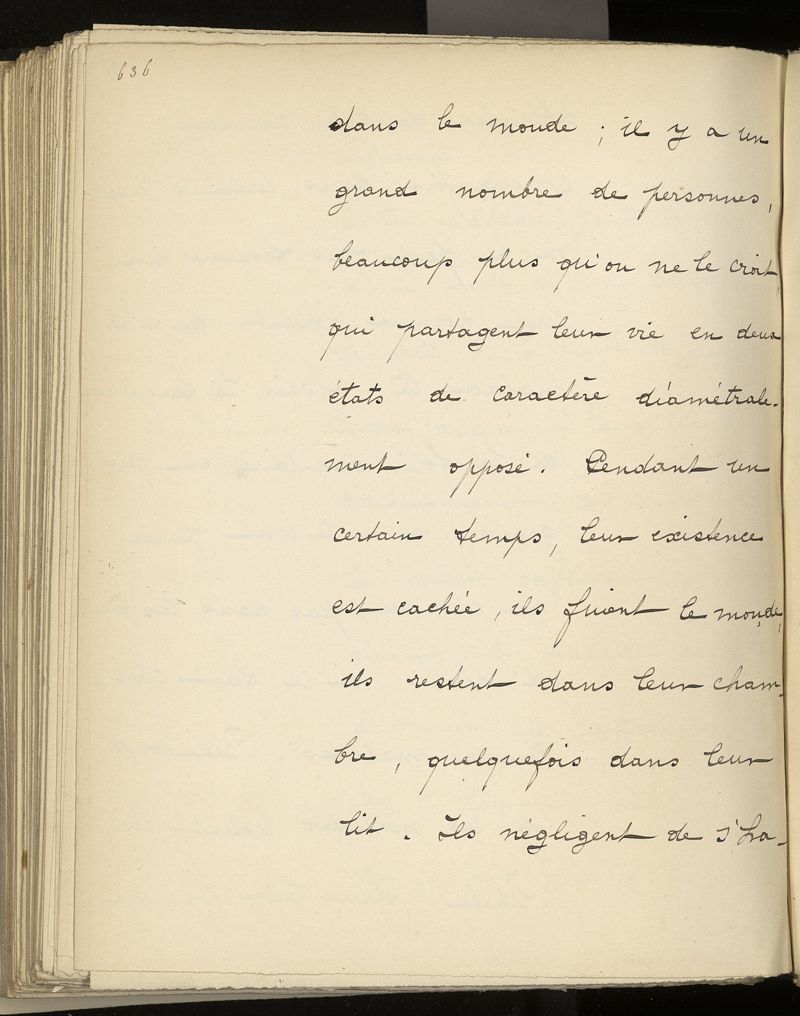 636
dans le monde ; il y a un
grand nombre de personnes,
beaucoup plus qu'on ne le croit,
qui partagent leur vie en deux
états de caractère diamétrale-
ment opposé. Pendant un
certain temps, leur existence
est cachée, ils fuient le monde,
ils restent dans leur cham-
bre, quelquefois dans leur
lit. Ils négligent de s'ha-